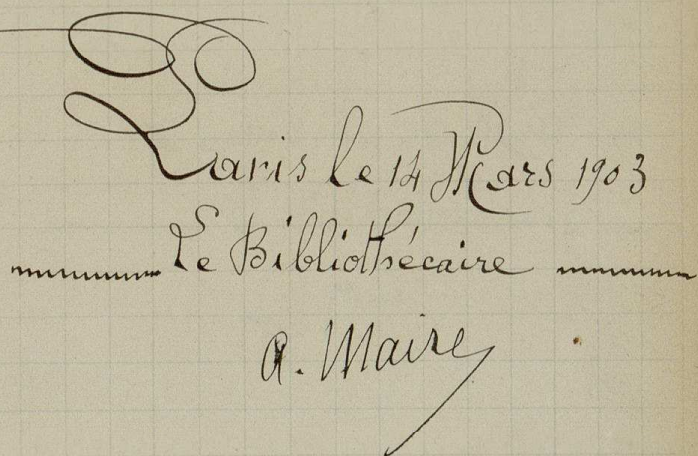 Paris le 14 Mars 1903
Le Bibliothécaire
A. Maire